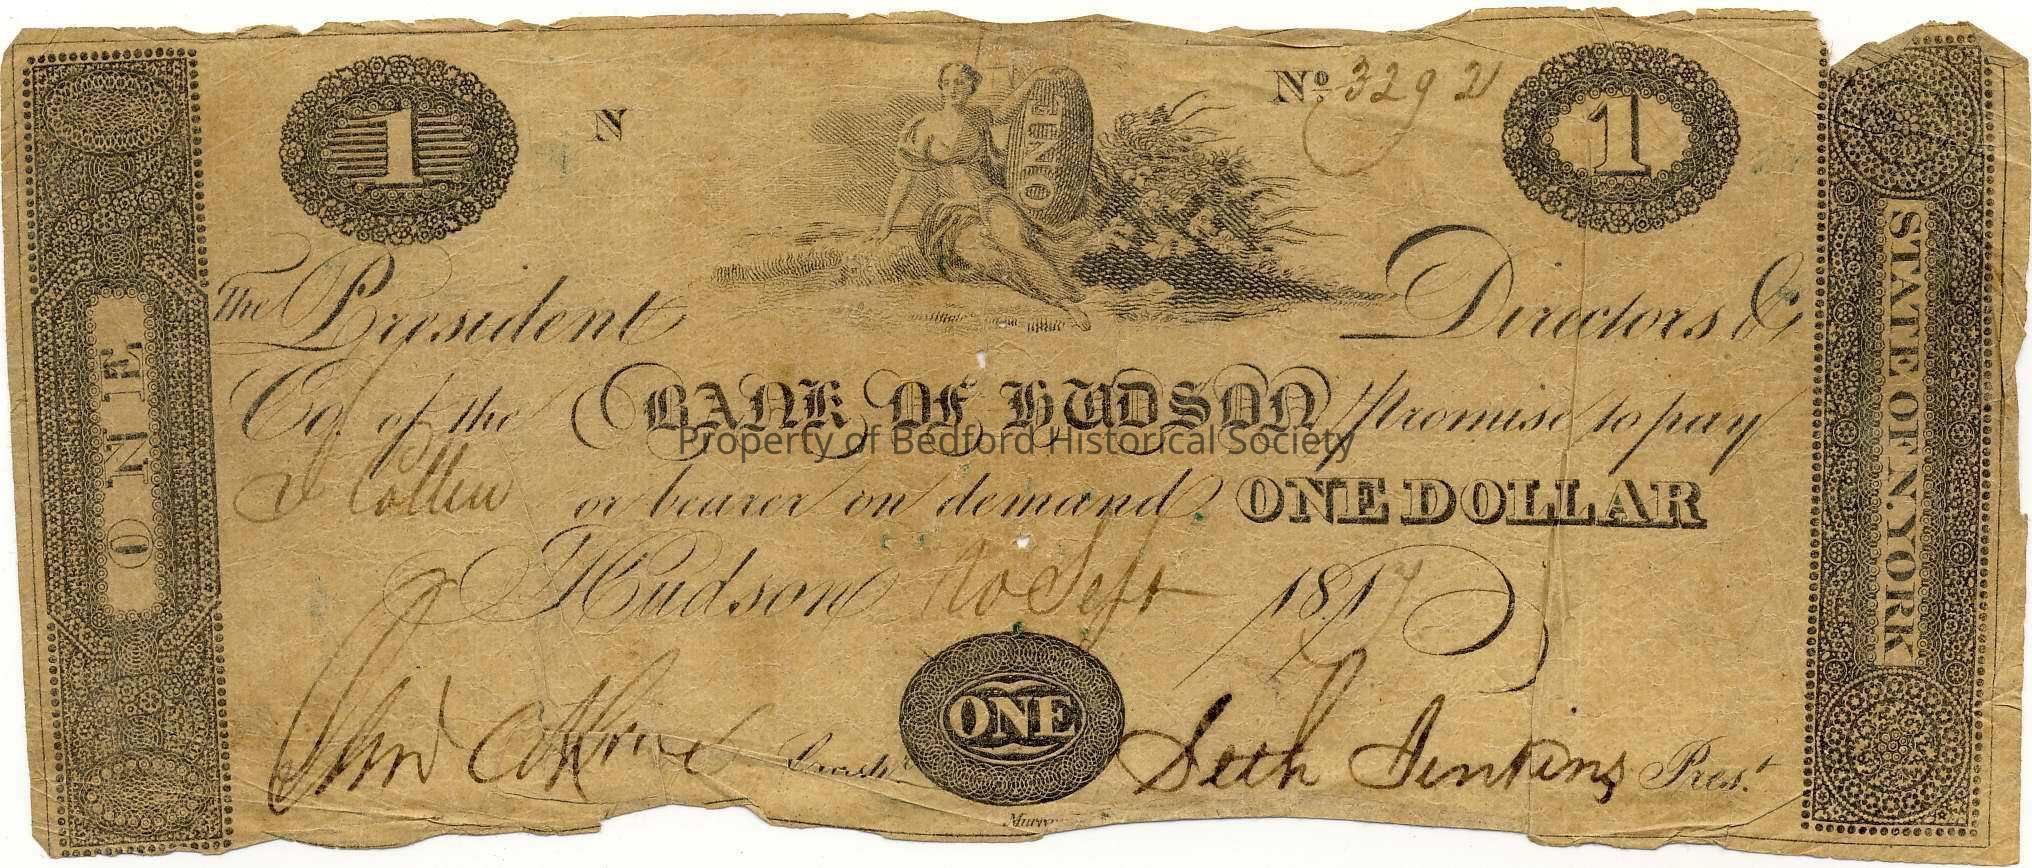 1 N ONE Nº 32921 1
The President Directors &
Co. of the BANK OF HUDSON promise to pay
or bearer on demand ONE DOLLAR
Hudson Sept 1817
ONE
Seth Jenkins Pres.t
ONE
STATE OF N.YORK
Property of Bedford Historical Society